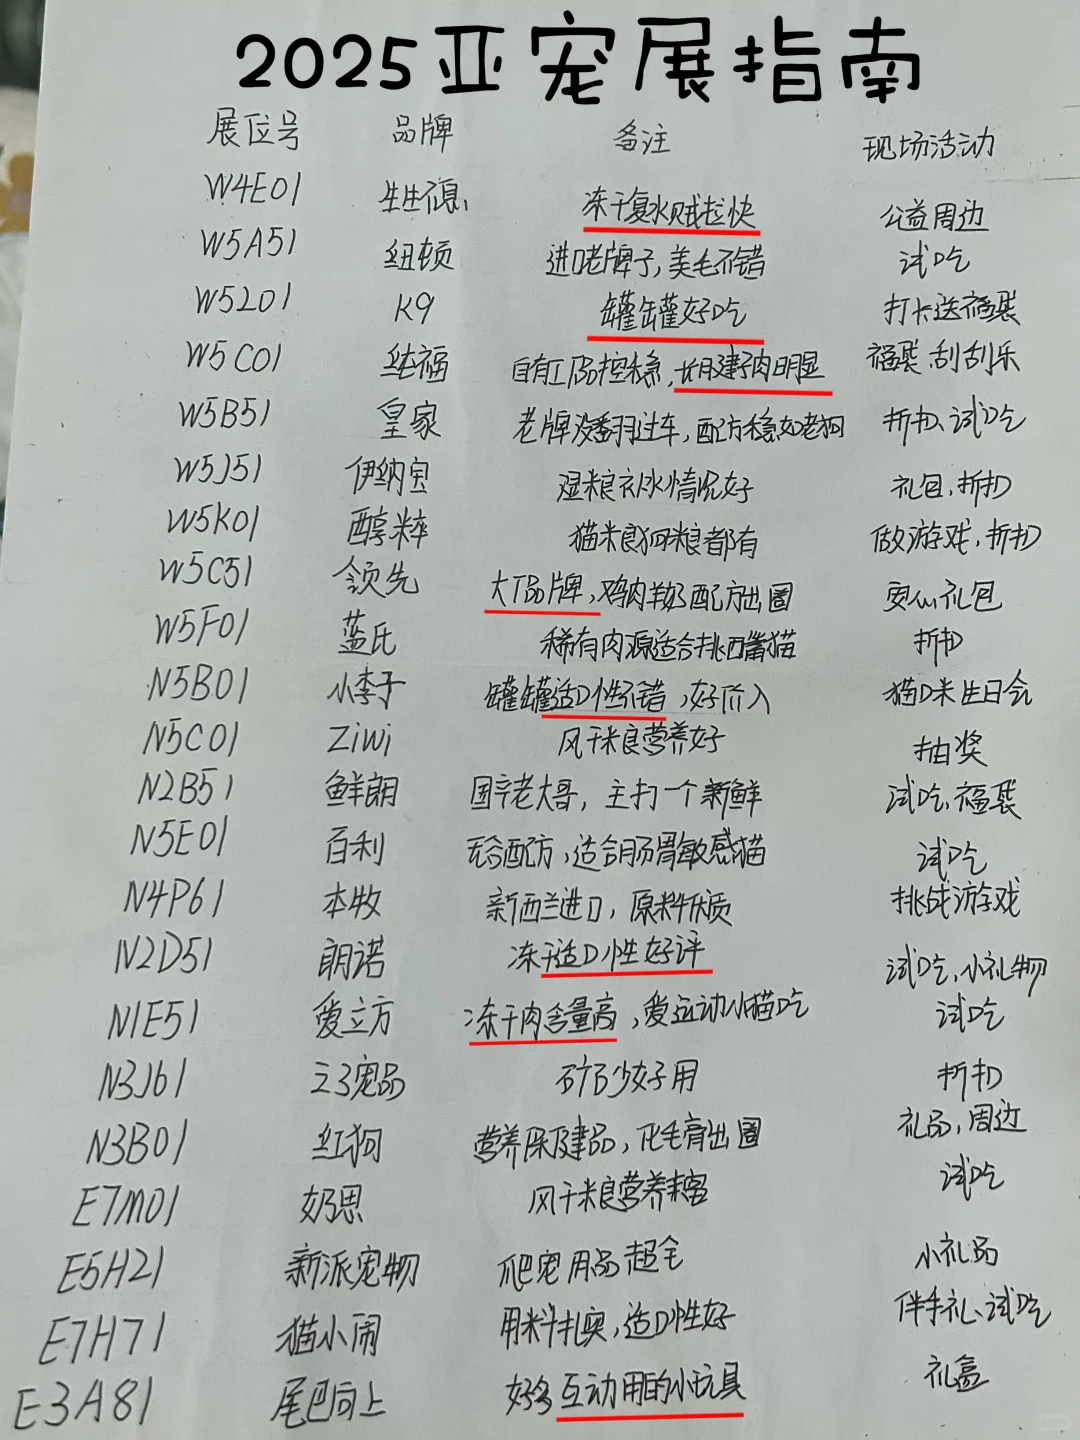 2025亚宠展指南
展位号 品牌 备注 现场活动
W4E01 生生不息 冻干复水贼拉快 公益周边
W5A51 纽顿 进口老牌子，美毛不错 试吃
W5201 K9 罐罐好吃 打卡送福袋
W5C01 纯福 自有工厂品控稳，长肌腱子肉明显 福袋、刮刮乐
W5B51 皇家 老牌没翻过车，配方稳如老狗 折扣、试吃
W5J51 伊纳宝 湿粮补水情况好 礼包，折扣
W5K01 醇粹 猫粮狗粮都有 做游戏，折扣
W5C51 领先 大厂品牌，鸡肉羊奶配方出圈 要加礼包
W5F01 蓝氏 稀有肉源适合挑嘴猫 折扣
N5B01 小李子 罐罐适口性不错，好价入 猫咪生日会
N5C01 Ziwi 风干粮营养好 抽奖
N2B51 鲜朗 国产老大哥，主打一个新鲜 试吃，福袋
N5E01 百利 无谷配方，适合肠胃敏感猫 试吃
N4P61 本牧 新西兰进口，原料优质 挑战游戏
N2D51 朗诺 冻干适口性好评 试吃，小礼物
N1E51 爱立方 冻干肉含量高，爱运动小猫吃 试吃
N3J61 233宠品 矿砂好用 折扣
N3B01 红狗 营养保健品，化毛膏出圈 礼品，周边
E7M01 奶思 风干粮营养丰富 试吃
E5H21 新派宠物 爬宠用品超全 小礼品
E7H71 猫小闹 用料扎实，适口性好 伴手礼、试吃
E3A81 尾巴向上 好多互动用的小玩具 礼盒